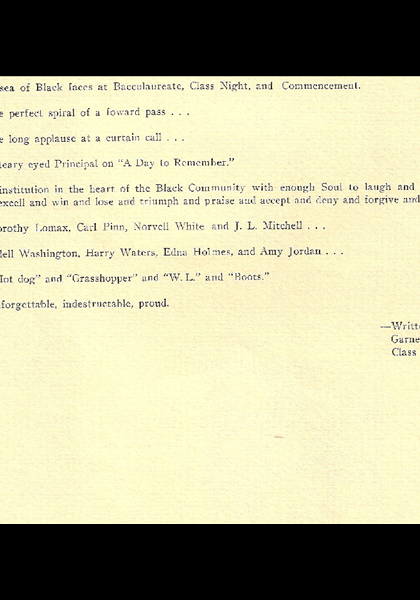 sea of Black faces at Baccalaureate, Class Night, and Commencement.
e perfect spiral of a foward pass . . .
e long applause at a curtain call . . .
teary eyed Principal on “A Day to Remember.”
institution in the heart of the Black Community with enough Soul to laugh and
excell and win and lose and triumph and praise and accept and deny and forgive and
orothy Lomax, Carl Pinn, Norvell White and J. L. Mitchell . . .
dell Washington, Harry Waters, Edna Holmes, and Amy Jordan . . .
Hot dog” and “Grasshopper” and “W. L.” and “Boots.”
forgettable, indestructable, proud.
—Writte
Garne
Class